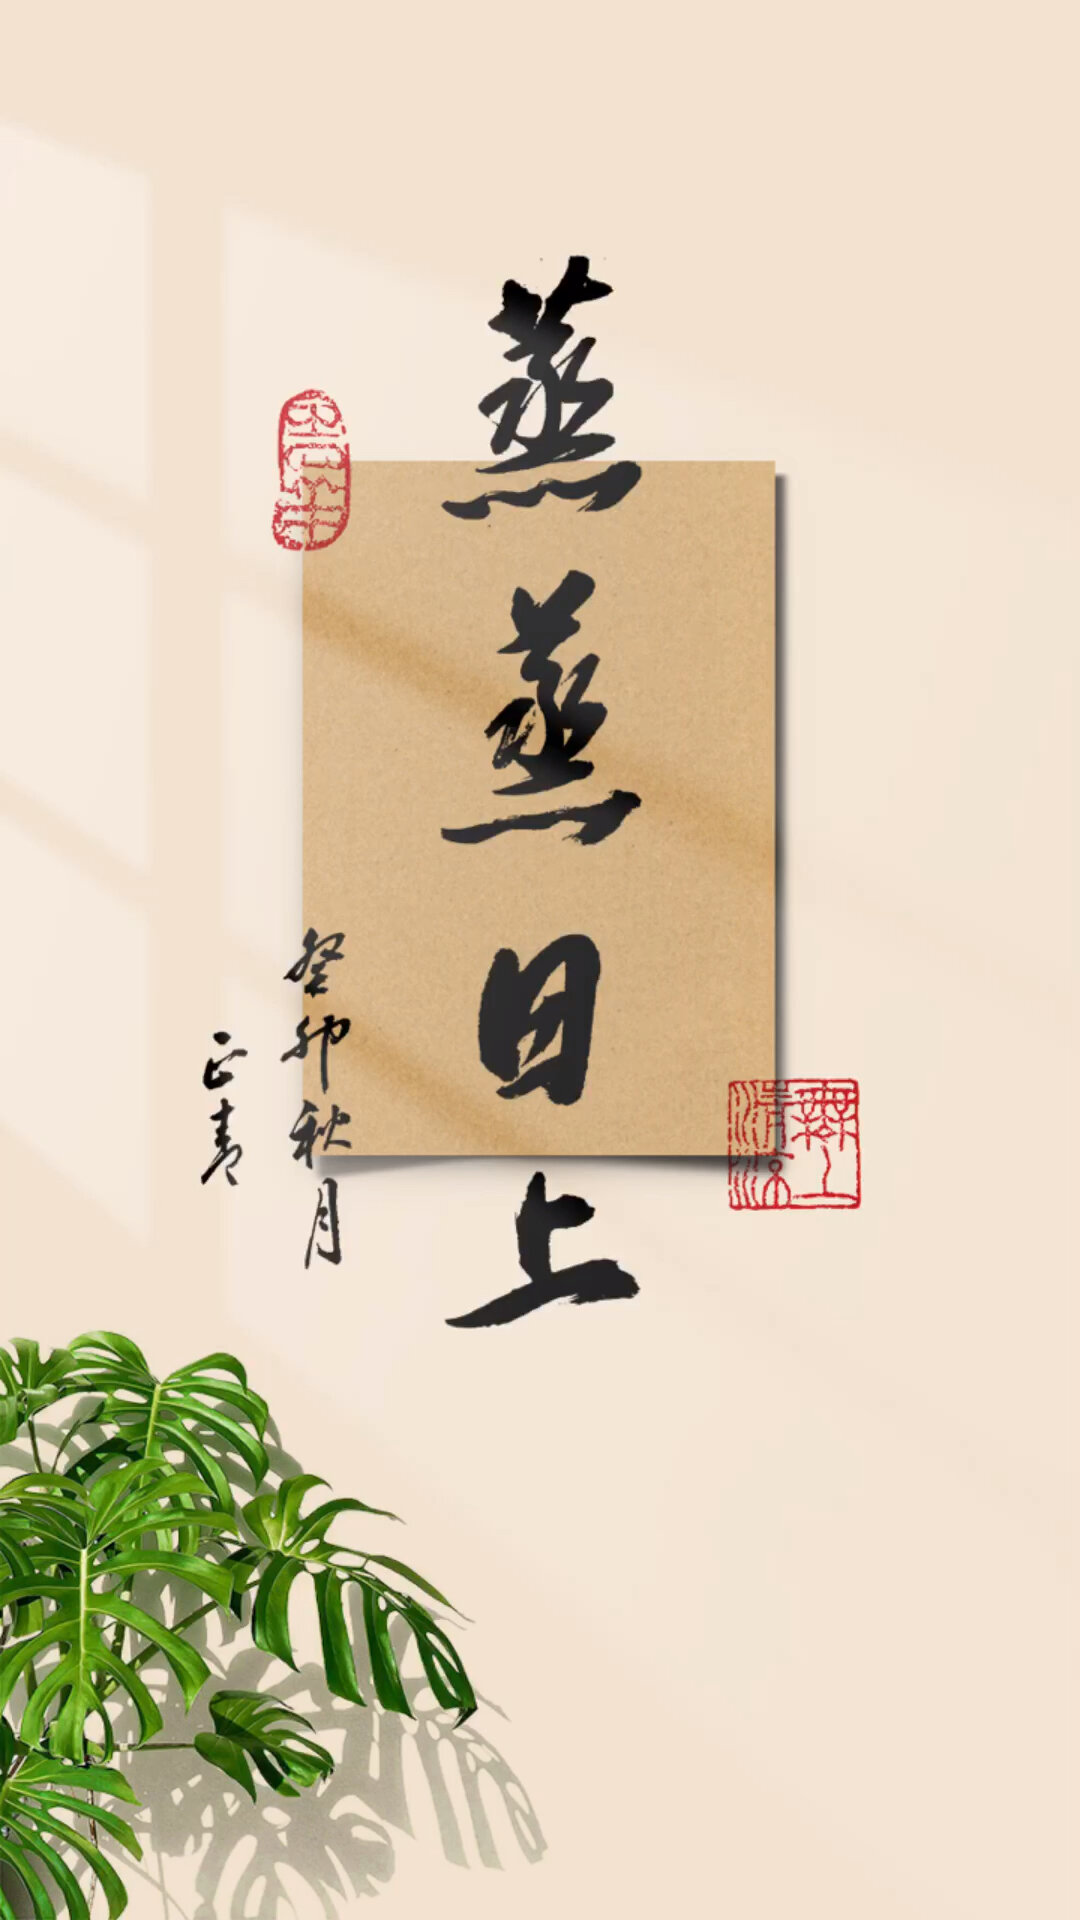 蒸蒸日上
癸卯秋月
正青